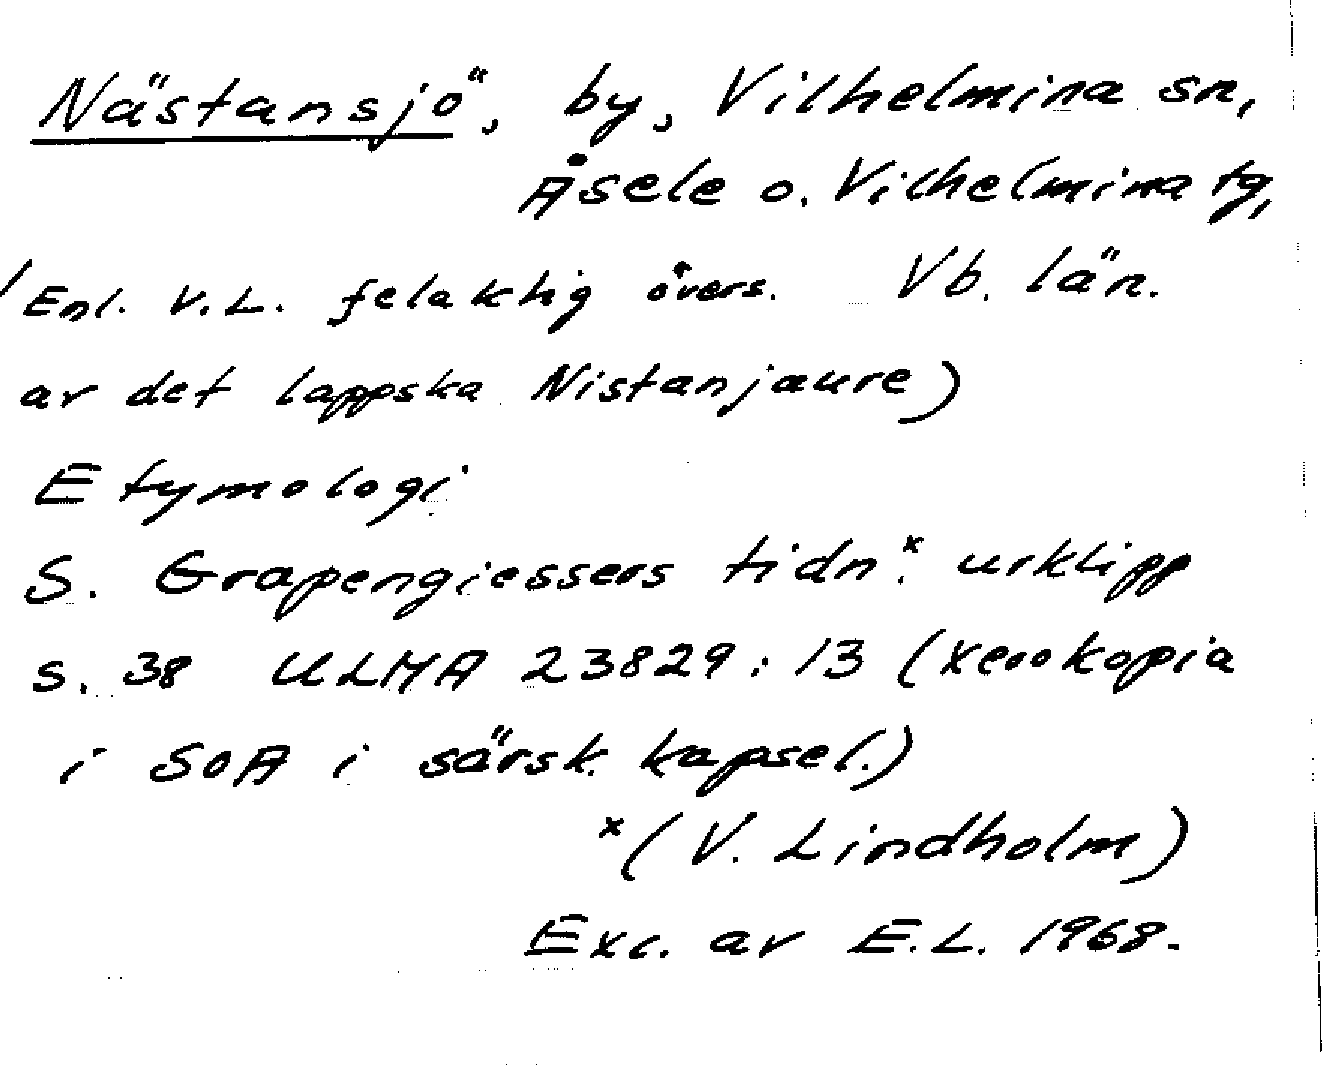 Nästansjö, by, Vilhelmina sn,
Åsele o. Vilhelmina tg,
Vb. län.
(Enl. V.L. felaktig övers.
av det lappska Nistanjaure)
Etymologi
S. Grapengiessers tidn.x urklipp
s. 38 ULMA 23829:13 (xerokopia
i SOA i särsk. kapsel.)
x(V. Lindholm)
Exc. av E.L. 1968.